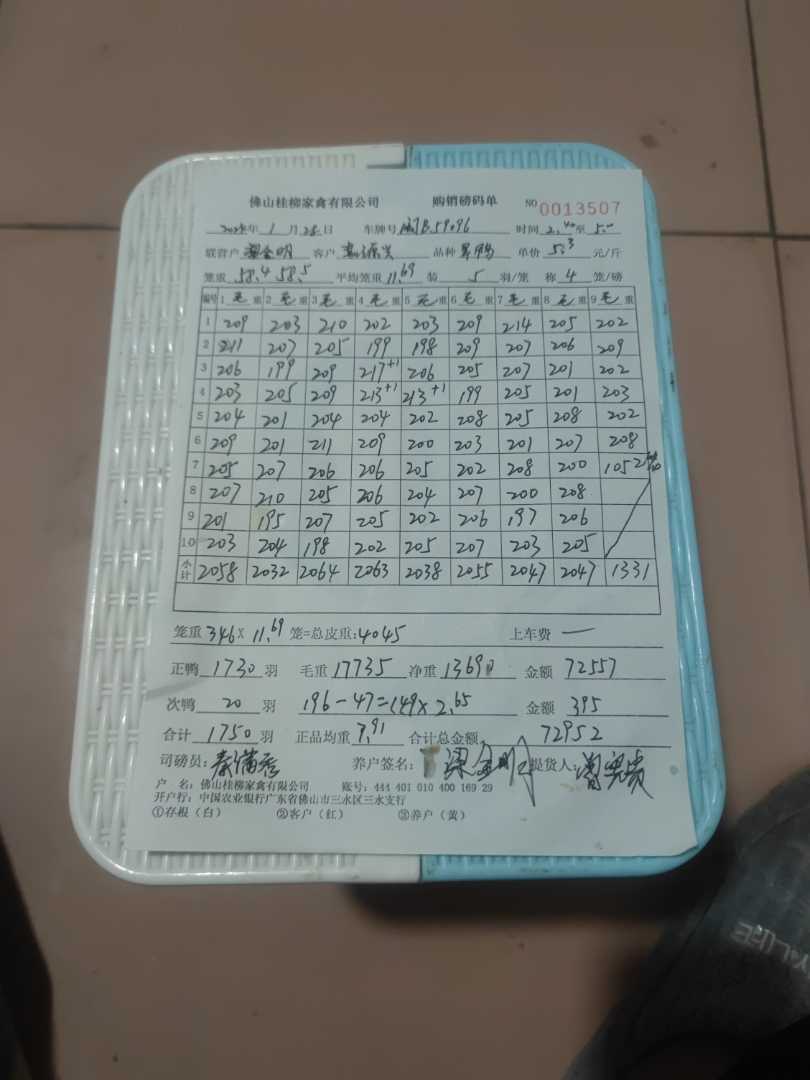 佛山桂柳家禽有限公司 购销磅码单 NO 0013507
年 1 月 28 日 车牌号 闽B59096 时间 2.40 至 5.00
联营户 梁金明 客户 品种 单价 5.3 元/斤
笼重 58.4 58.5 平均笼重 11.69 装 5 羽/笼 称 4 笼/磅
编号 1 毛 重 2 毛 重 3 毛 重 4 毛 重 5 毛 重 6 毛 重 7 毛 重 8 毛 重 9 毛 重
1 209 203 210 202 203 209 214 205 202
2 211 207 205 199 198 209 207 206 209
3 206 199 209 217+1 206 205 207 201 202
4 203 205 209 213+1 213+1 199 205 201 203
5 204 201 204 204 202 208 205 208 202
6 209 201 211 209 200 203 201 207 208
7 205 207 206 206 205 202 208 200 105
8 207 210 205 206 204 207 200 208
9 201 195 207 205 202 206 197 206
10 203 204 198 202 205 207 203 205
小计 2058 2032 2064 2063 2038 2055 2047 2047 1331
笼重 346 × 11.69 笼=总皮重: 4045 上车费 —
正鸭 1730 羽 毛重 17735 净重 13690 金额 72557
次鸭 20 羽 196-47=149×2.65 金额 395
合计 1750 羽 正品均重 7.91 合计总金额 72952
司磅员: 养户签名: 梁金明 提货人:
户 名: 佛山桂柳家禽有限公司 账号: 444 401 010 400 169 29
开户行: 中国农业银行广东省佛山市三水区三水支行
①存根(白) ②客户(红) ③养户(黄)